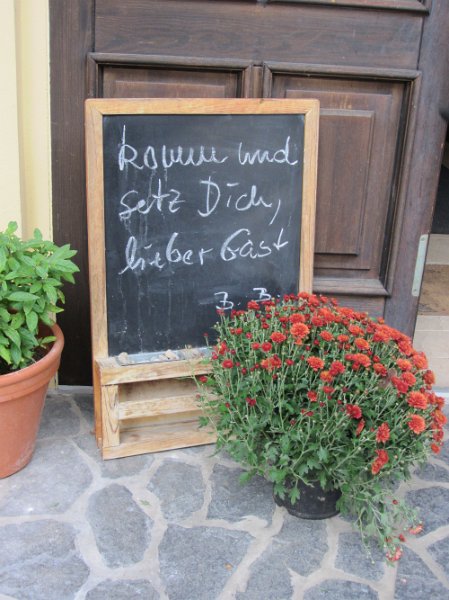 komm und
setz Dich,
lieber Gast
B. B.